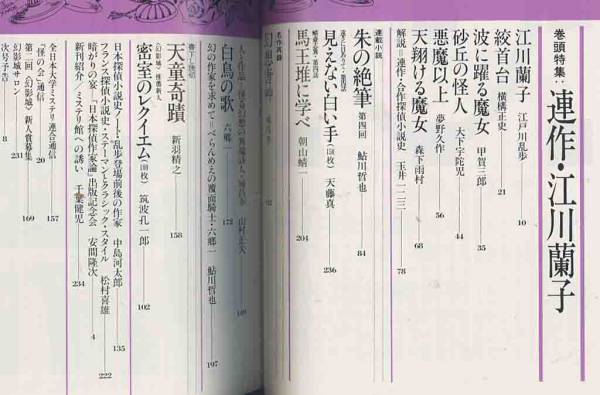 巻頭特集:連作・江川蘭子
江川蘭子 江戸川乱歩 10
絞首台 横溝正史 21
波に躍る魔女 甲賀三郎 35
砂丘の怪人 大下宇陀児 44
悪魔以上 夢野久作 56
天翔ける魔女 森下雨村 68
解説=連作・合作探偵小説史 玉井一二三 78
連載小説
朱の絶筆 第四回 鮎川哲也 84
見えない白い手(150枚) 天藤真 236
馬王堆に学べ 朝山蜻一 204
名作再録
山村正夫
白鳥の歌 六郷一 172
幻の作家を求めて=べらんめえの覆面騎士・六郷一 鮎川哲也 197
天童奇蹟 新羽精之 158
密室のレクイエム(100枚) 筑波孔一郎 102
日本探偵小説史ノート・乱歩登場前後の作家 中島河太郎 135
フランス探偵小説史・ステーマンとクラシック・スタイル 松村喜雄 222
暗がりの宴=「日本探偵作家論」出版記念会 安間隆次 4
新刊紹介/ミステリ館への誘い 千葉健児 234
全日本大学ミステリ連合通信 157
「怪の会」通信 20
第二回〈幻影城〉新人賞募集 169
幻影城サロン 231
次号予告 8